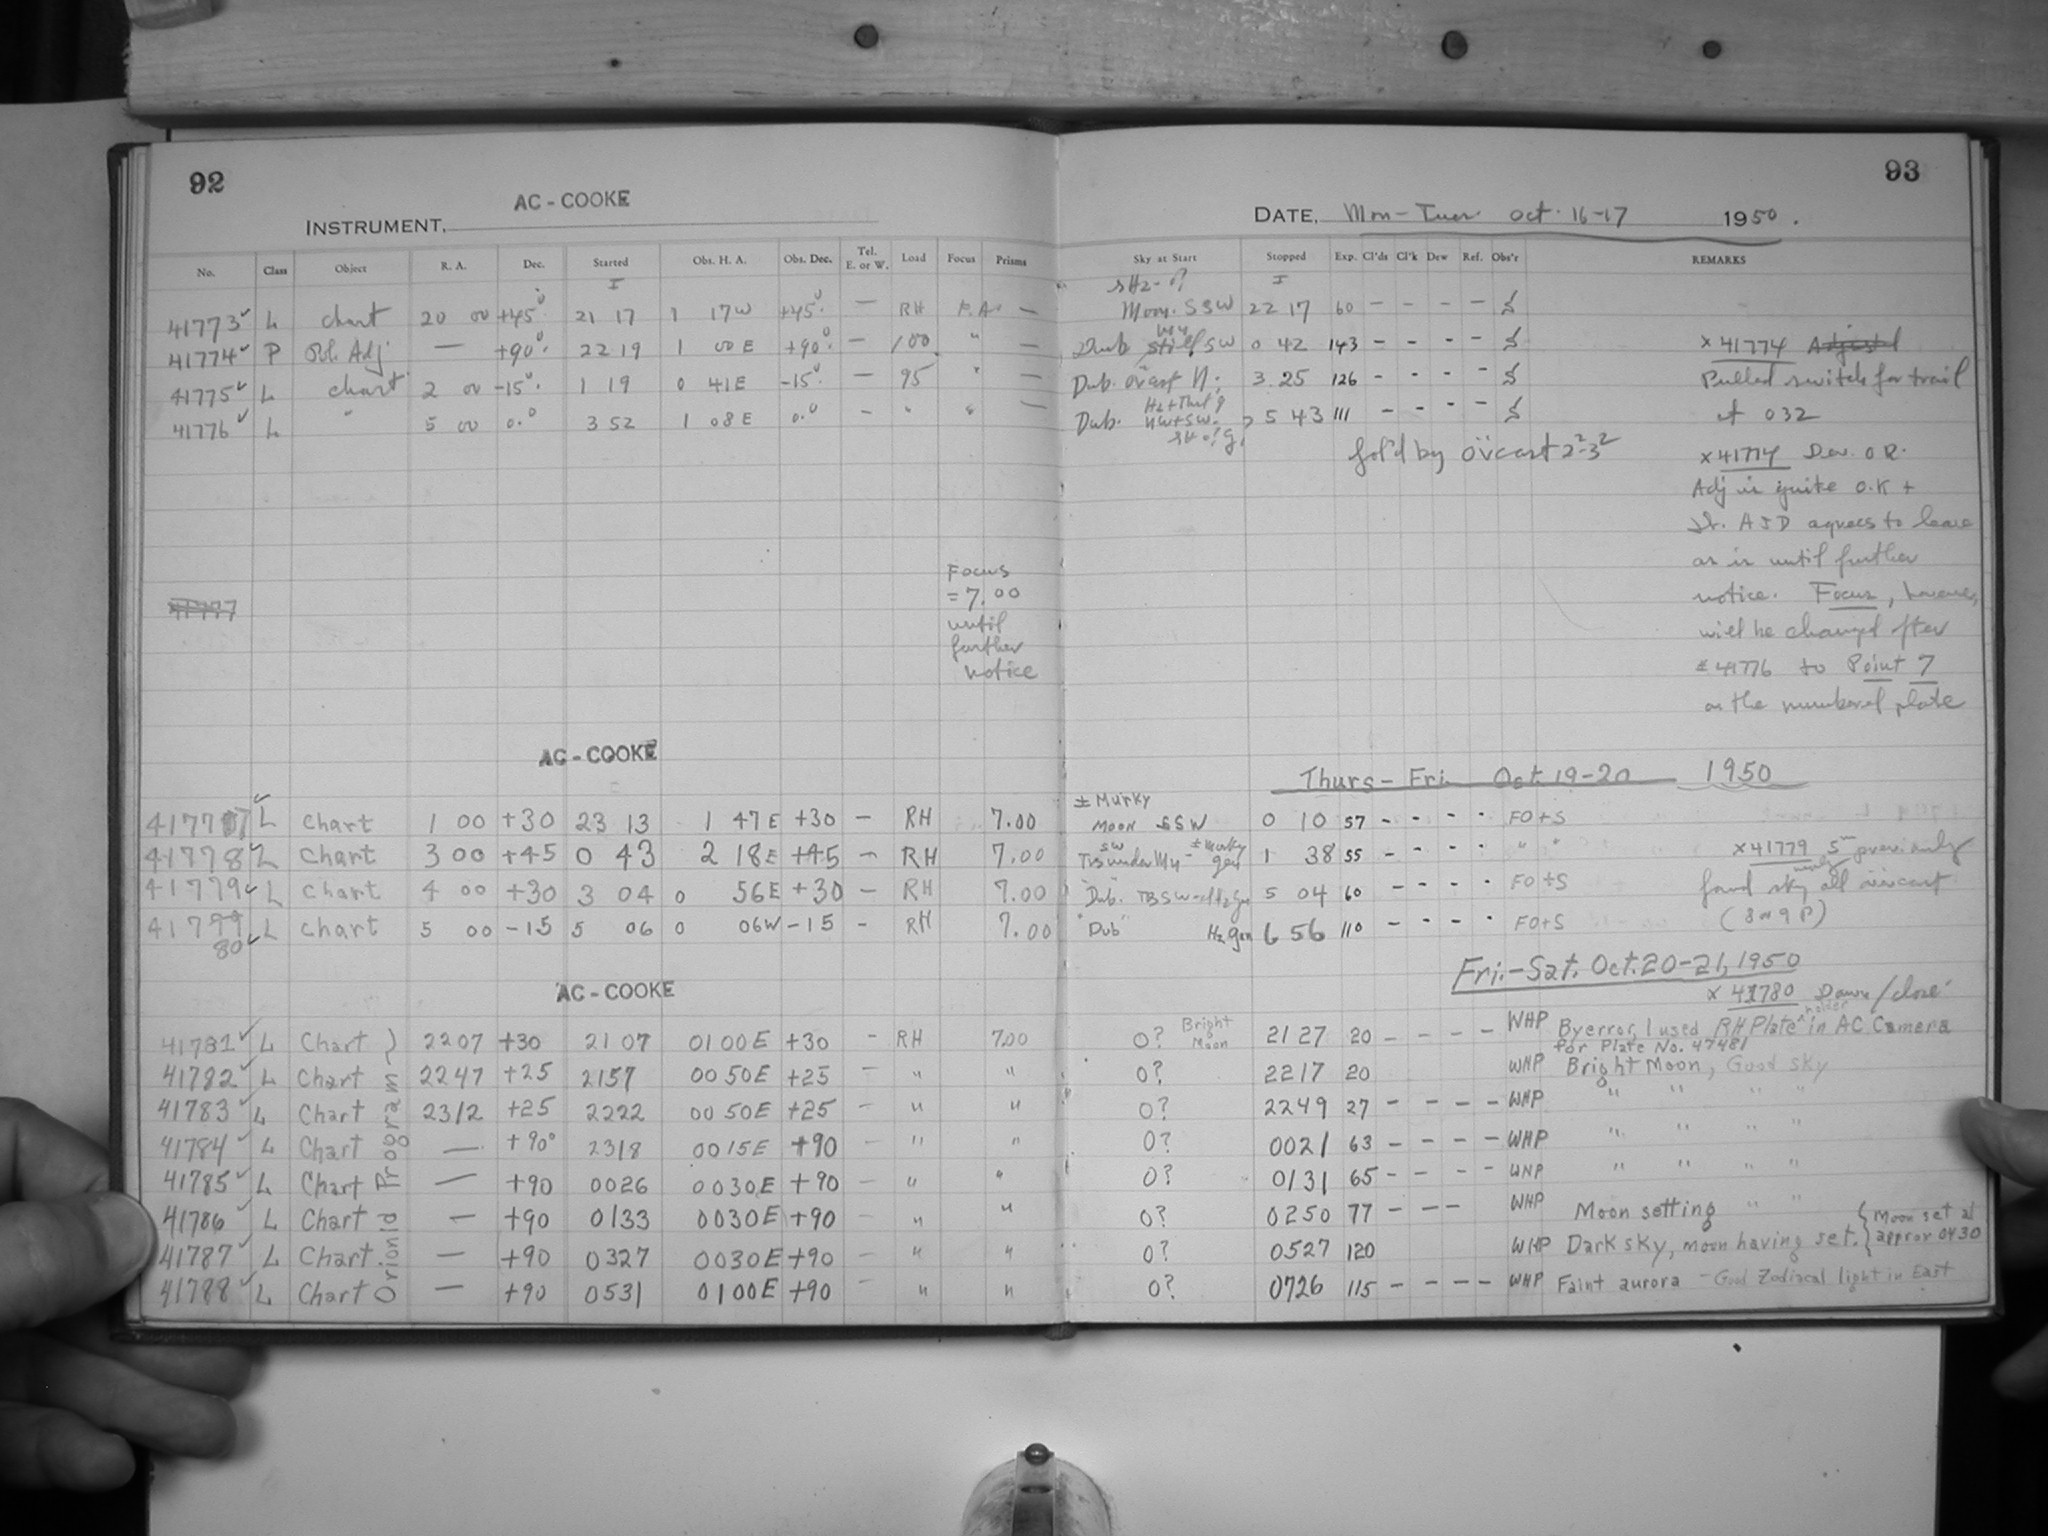 92
AC - COOKE
INSTRUMENT,
No. Class Object R. A. Dec. Started Obs. H. A. Obs. Dec. Tel. E. or W. Load Focus Prisms
41773 L chart 20 00 +45° 21 17 1 17W +45° — RH F.A. —
41774 P Pol. Adj — +90° 22 19 1 00 E +90° — 100 " —
41775 L chart 2 00 -15° 1 19 0 41E -15° — 95 " —
41776 L " 5 00 0.° 3 52 1 08 E 0.° - " " —
Focus
= 7.00
until
further
notice
41777
AC - COOKE
41777 L Chart 1 00 +30 23 13 1 47E +30 — RH 7.00
41778 L Chart 3 00 +45 0 43 2 18E +45 — RH 7.00
41779 L Chart 4 00 +30 3 04 0 56E +30 — RH 7.00
41799 L Chart 5 00 -15 5 06 0 06W -15 - RH 7.00
80
AC - COOKE
41781 L Chart 2207 +30 2107 0100E +30 - RH 7.00
41782 L Chart 2247 +25 2157 0050E +25 — " "
41783 L Chart 2312 +25 2222 0050E +25 — " "
41784 L Chart — +90° 2318 0015E +90 — " "
41785 L Chart — +90 0026 0030E +90 — " "
41786 L Chart — +90 0133 0030E +90 — " "
41787 L Chart — +90 0327 0030E +90 — " "
41788 L Chart — +90 0531 0100E +90 — " "
Orionid Program
93
DATE, Mon - Tues. Oct. 16-17 1950.
Sky at Start Stopped Exp. Cl'ds Cl'k Dew Ref. Obs'r REMARKS
Moon. SSW 22 17 60 - - - -
Dub SW 0 42 143 - - - -
Dub. ovcast N. 3 25 126 - - - -
Dub. NW+SW. 5 43 111 - - - -
fol'd by ovcast
x 41774 Adjust
Pulled switch for trail
at 032
x 41774 Dev. O.K.
Adj is quite O.K +
agrees to leave
as is until further
notice. Focus, however,
will be changed after
# 41776 to Point 7
on the numbered plate
Thurs - Fri Oct. 19-20 1950
± Murky
Moon SSW 0 10 57 - - - - FO+S
SW ± Murky
gen 1 38 55 - - - - " "
"Dub." 5 04 60 - - - - FO+S
"Dub" Hz gen 6 56 110 - - - - FO+S
x 41779 5m previously
found sky all overcast
(8 or 9 P)
Fri.-Sat. Oct. 20-21, 1950
x 41780 Dawn / close
0? Bright Moon 2127 20 - - - - WHP By error, I used RH Plate holder in AC Camera
for Plate No. 47481
0? 2217 20 WHP Bright Moon, Good sky
0? 2249 27 - - - - WHP " " " "
0? 0021 63 - - - - WHP " " " "
0? 0131 65 - - - - WHP " " " "
0? 0250 77 - - - WHP Moon setting " "
0? 0527 120 WHP Dark sky, moon having set. { Moon set at approx 0430
0? 0726 115 - - - - WHP Faint aurora - Good Zodiacal light in East